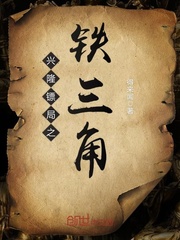 兴隆镖局之
铁三角